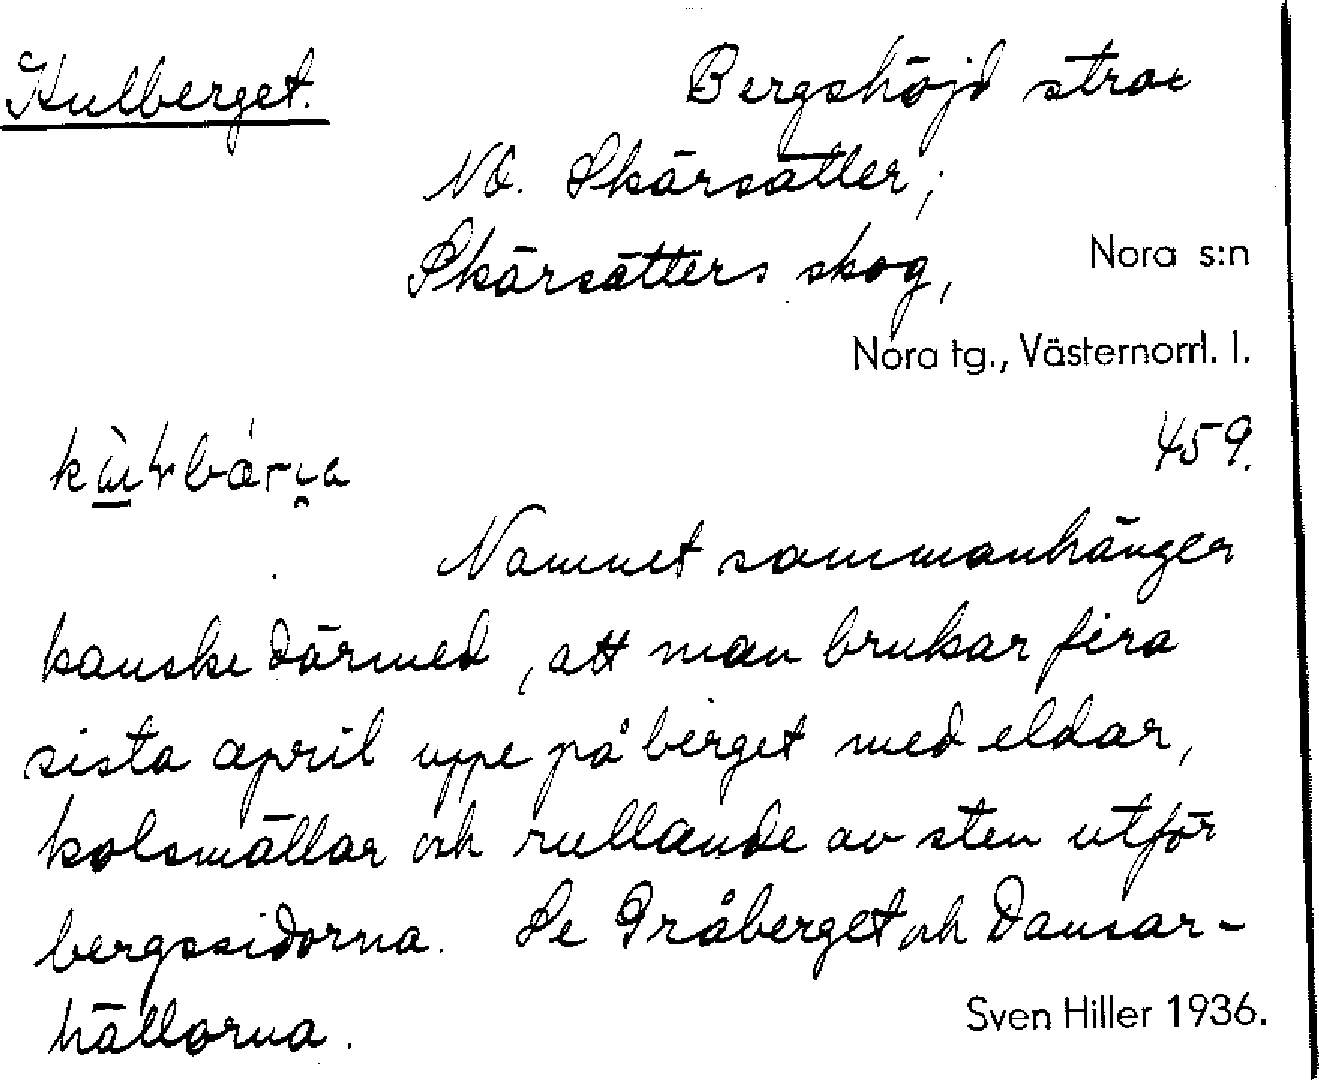 Kulberget.
Bergshöjd strax
NO. Skärsätter;
Skärsätters skog,
Nora s:n
Nora tg., Västernorrl. l.
459.
Namnet sammanhänger
kanske därmed, att man brukar fira
sista april uppe på berget med eldar,
kolsmällar och rullande av sten utför
bergssidorna. Se Gråberget och Dansar-
hällorna.
Sven Hiller 1936.